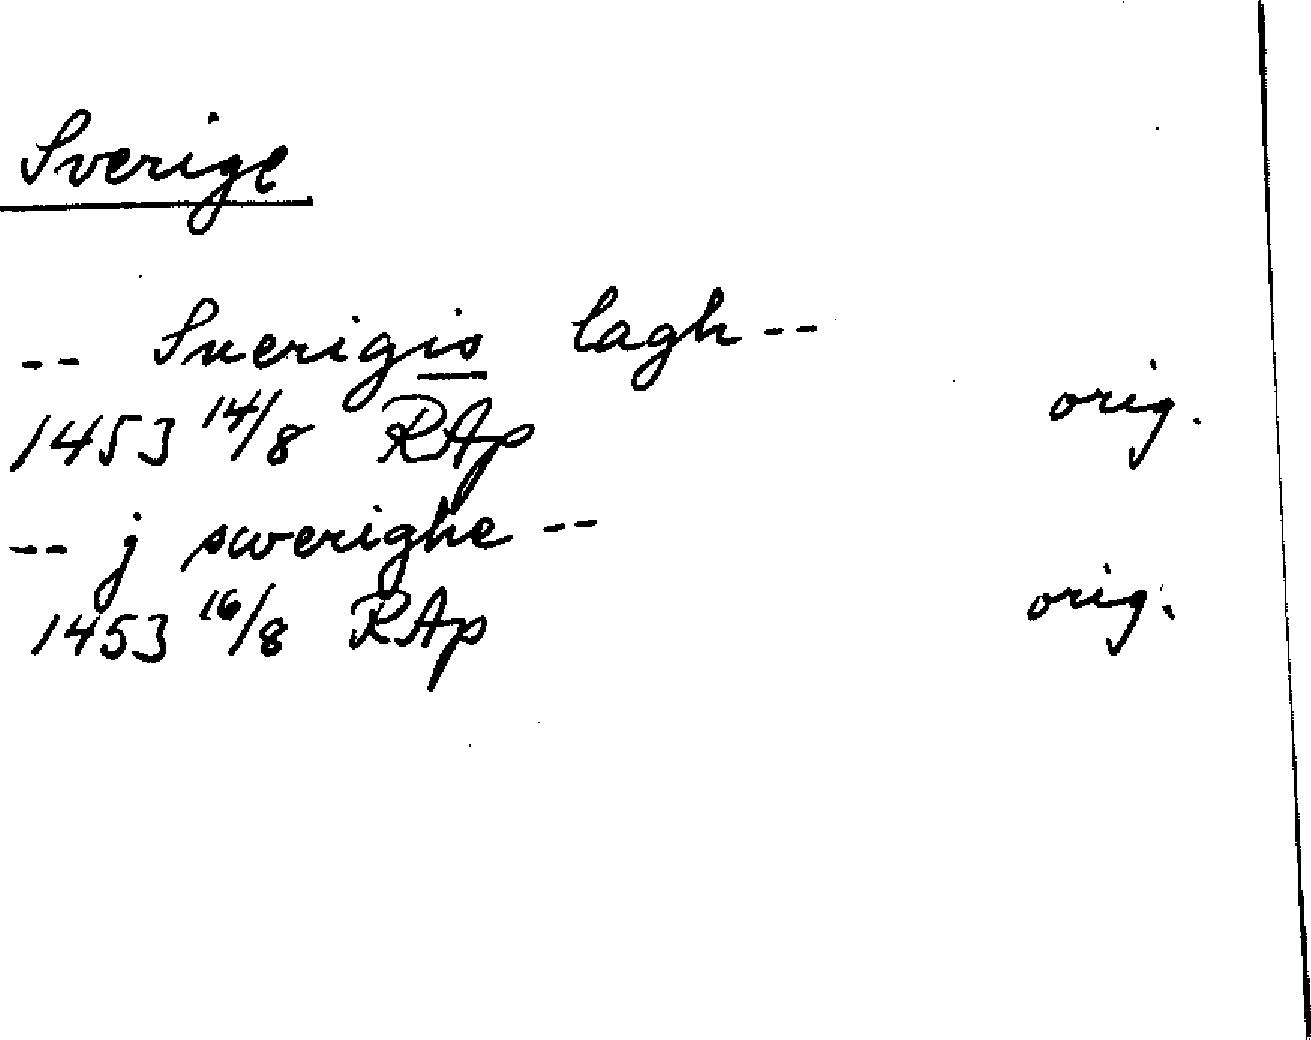 Sverige
-- Suerigis lagh --
1453 14/8 RAp orig.
-- j swerighe --
1453 16/8 RAp orig.